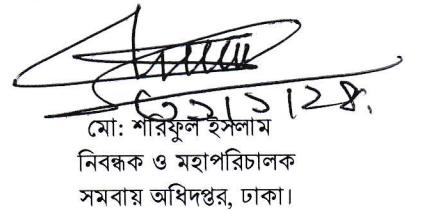 ৩১/১/২৪.
মো: শরিফুল ইসলাম
নিবন্ধক ও মহাপরিচালক
সমবায় অধিদপ্তর, ঢাকা।